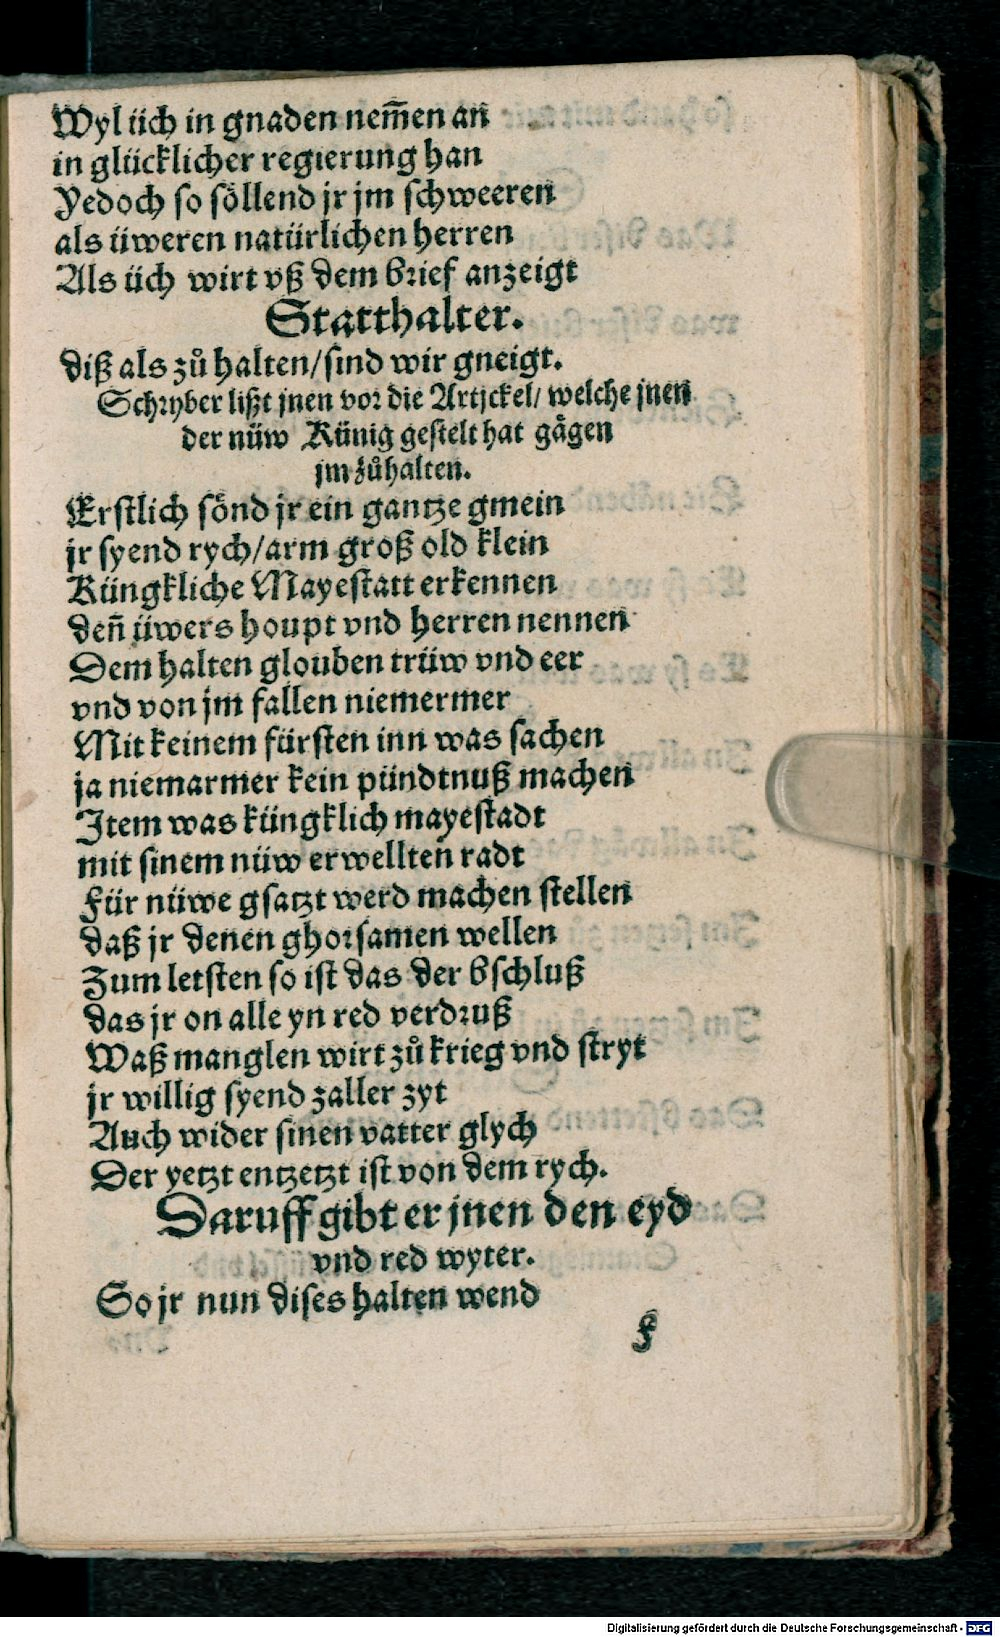 Wyl üch in gnaden nem̃en an
in glücklicher regierung han
Yedoch so söllend jr jm schweeren
als üweren natürlichen herren
Als üch wirt vß dem brief anzeigt
Statthalter.
diß als zů halten/sind wir gneigt.
Schryber lißt jnen vor die Artjckel/ welche jnen
der nüw Künig gestelt hat gägen
jm zůhalten.
Erstlich sönd jr ein gantze gmein
jr syend rych/arm groß old klein
Küngkliche Mayestatt erkennen
deñ üwers houpt vnd herren nennen
Dem halten glouben trüw vnd eer
vnd von jm fallen niemermer
Mit keinem fürsten inn was sachen
ja niemarmer kein pündtnuß machen
Item was küngklich mayestadt
mit sinem nüw erwellten radt
Für nüwe gsatzt werd machen stellen
daß jr denen ghorsamen wellen
Zum letsten so ist das der bschluß
das jr on alle yn red verdruß
Waß manglen wirt zů krieg vnd stryt
jr willig syend zaller zyt
Auch wider sinen vatter glych
Der yetzt entzetzt ist von dem rych.
Daruff gibt er jnen den eyd
vnd red wyter.
So jr nun dises halten wend
f
Digitalisierung gefördert durch die Deutsche Forschungsgemeinschaft - DFG